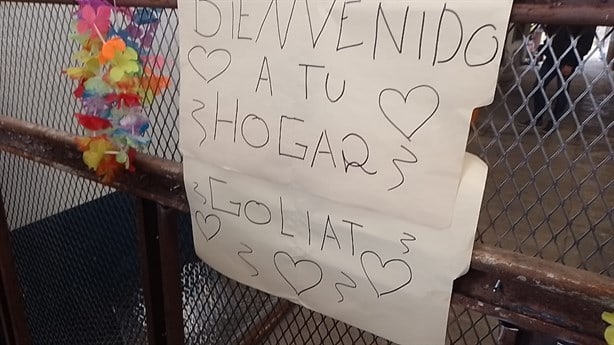 BIENVENIDO
A TU
HOGAR
GOLIAT